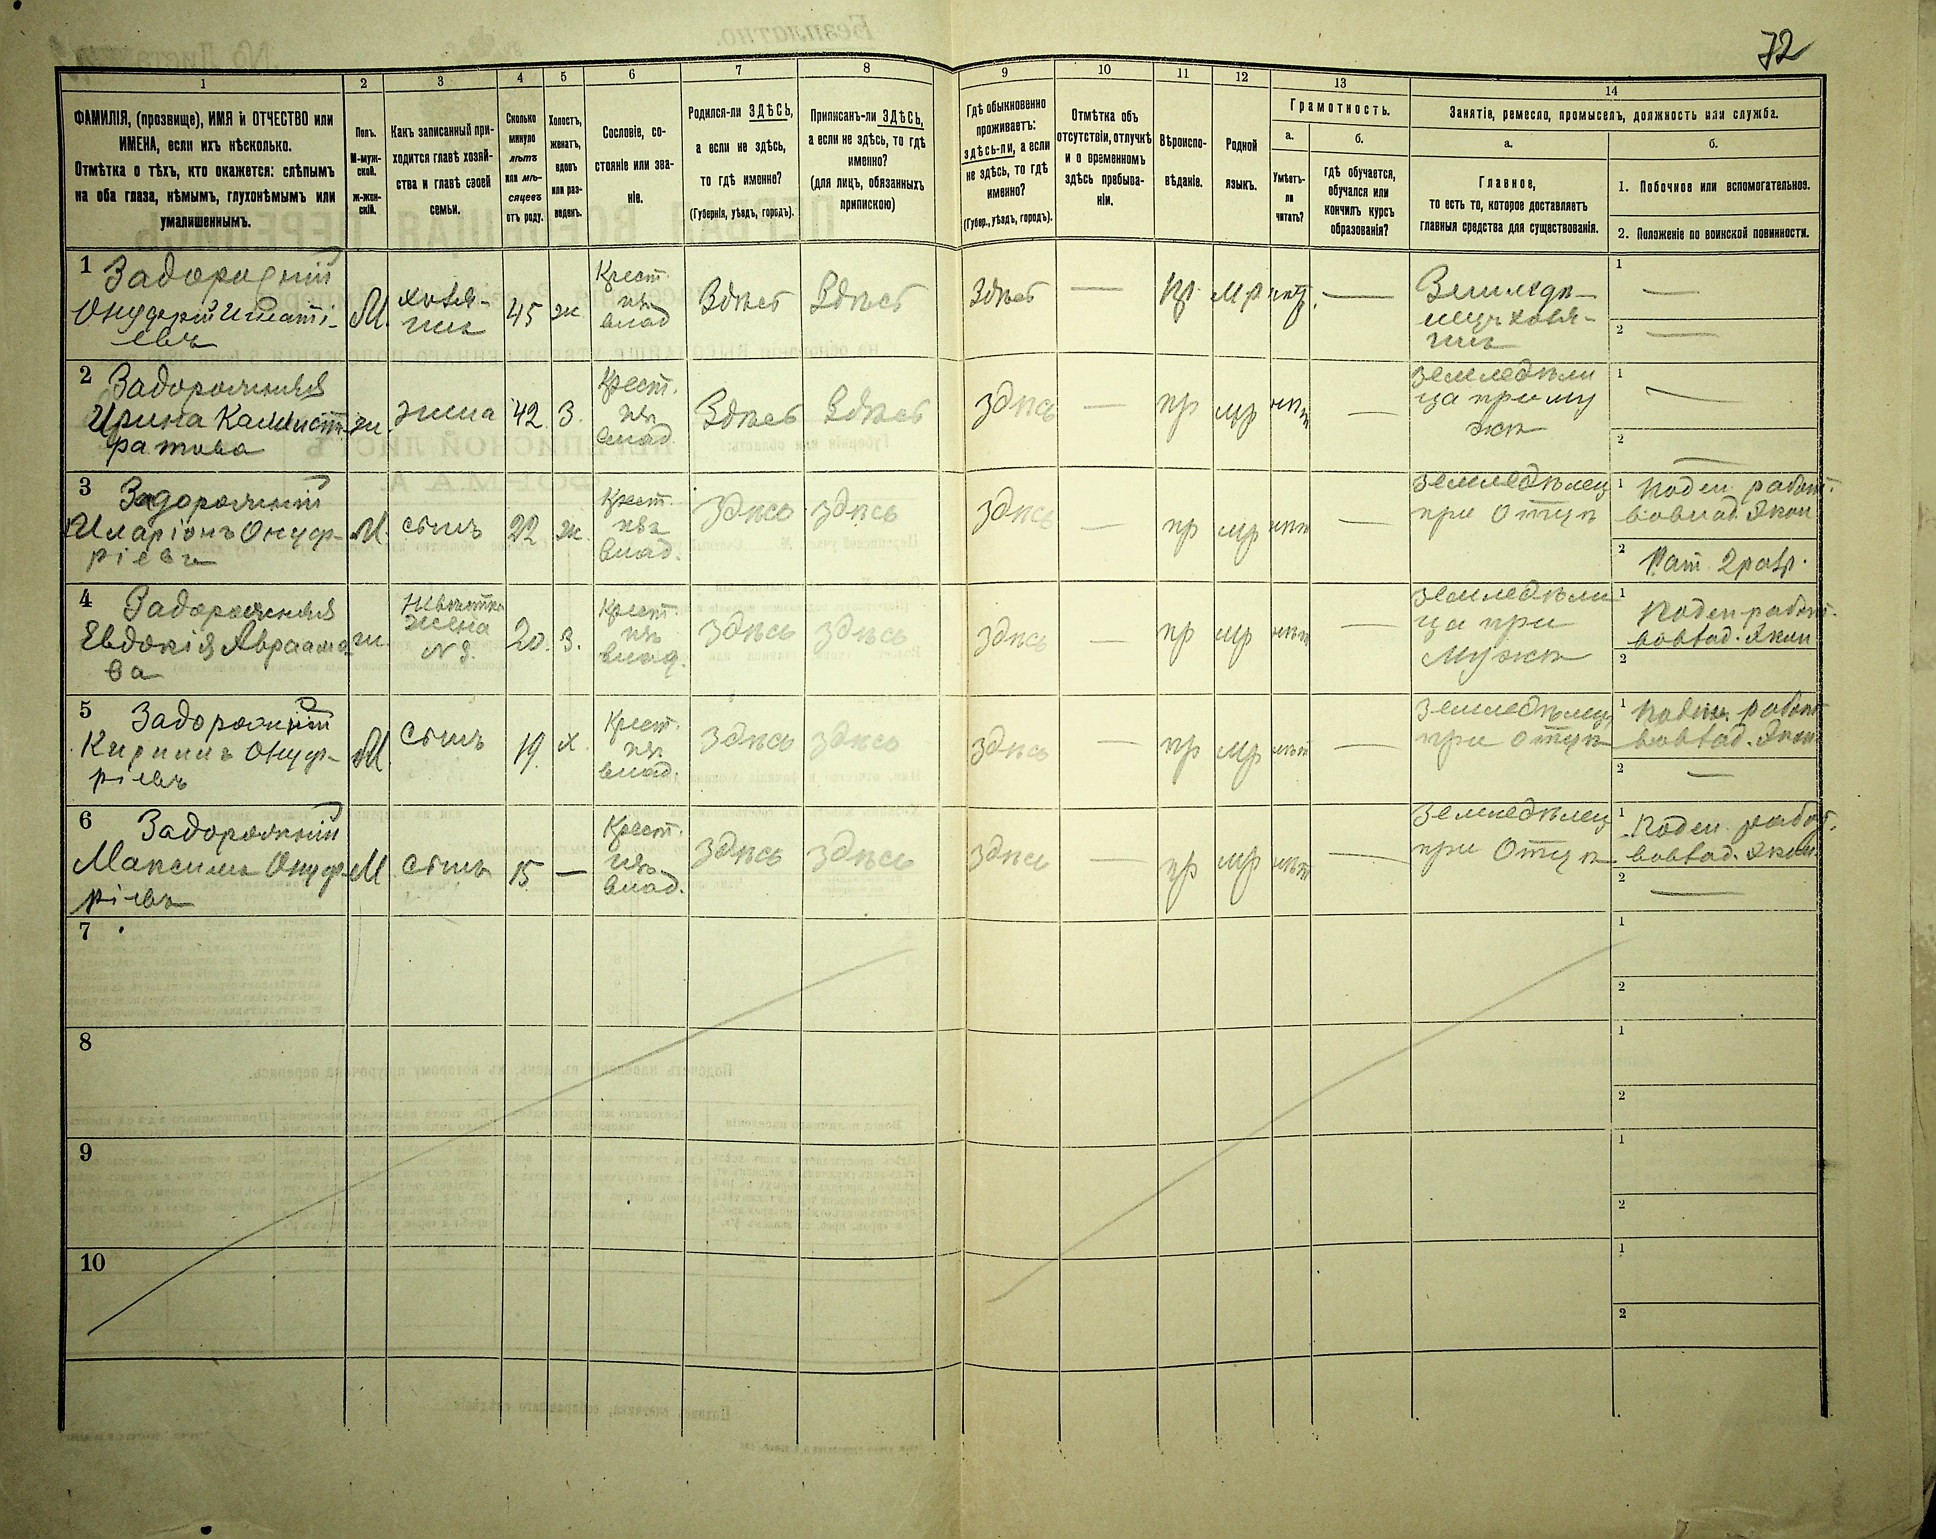 72
1 2 3 4 5 6 7 8 9 10 11 12 13 14
ФАМИЛІЯ, (прозвище), ИМЯ и ОТЧЕСТВО или
ИМЕНА, если ихъ нѣсколько.
Отмѣтка о тѣхъ, кто окажется: слѣпымъ
на оба глаза, нѣмымъ, глухонѣмымъ или
умалишеннымъ.
Полъ.
М-муж-
ской.
ж-жен-
скій.
Какъ записанный при-
ходится главѣ хозяй-
ства и главѣ своей
семьи.
Сколько
минуло
лѣтъ
или мѣ-
сяцевъ
отъ роду.
Холостъ,
женатъ,
вдовъ
или раз-
веденъ.
Сословіе, со-
стояніе или зва-
ніе.
Родился-ли ЗДѢСЬ,
а если не здѣсь,
то гдѣ именно?
(Губернія, уѣздъ, городъ).
Приписанъ-ли ЗДѢСЬ,
а если не здѣсь, то гдѣ
именно?
(для лицъ, обязанныхъ
припискою)
Гдѣ обыкновенно
проживаетъ:
здѣсь-ли, а если
не здѣсь, то гдѣ
именно?
(Губер., уѣздъ, городъ).
Отмѣтка объ
отсутствіи, отлучкѣ
и о временномъ
здѣсь пребыва-
ніи.
Вѣроиспо-
вѣданіе.
Родной
языкъ.
Грамотность.
а.
Умѣетъ-
ли
читать?
б.
гдѣ обучается,
обучался или
кончилъ курсъ
образованія?
Занятіе, ремесло, промыселъ, должность или служба.
а.
Главное,
то есть то, которое доставляетъ
главныя средства для существованія.
б.
1. Побочное или вспомогательное.
2. Положеніе по воинской повинности.
1 Задорожній
Онуфрій Игнаті-
евъ
М.
хозя-
инъ
45
ж
Крест.
изъ
влад
Здѣсь
Здѣсь
Здѣсь
—
пр
мр
нѣтъ
—
Земледѣ-
лецъ хозя-
инъ
1 —
2 —
2 Задорожняя
Ирина Каллист-
ратова
ж.
жена
42
З.
Крест.
изъ
влад
Здѣсь
Здѣсь
здѣсь
—
пр
мр
нѣтъ
—
земледѣли
ца при му
жѣ
1 —
2 —
3 Задорожній
Иларіонъ Онуф-
ріевъ
М.
сынъ
22
ж.
Крест.
изъ
влад.
здѣсь
здѣсь
здѣсь
—
пр
мр
нѣтъ
—
земледѣлец
при отцѣ
1 Поден. работ.
2 Рат. 2 разр.
4 Задорожняя
Евдокія Авраамо
ва
ж.
невѣстка
жена
N 3.
20.
З.
Крест.
изъ
влад.
здѣсь
здѣсь
здѣсь
—
пр
мр
нѣтъ
—
земледѣли
ца при
мужѣ
1 Поден работ.
2
5 Задорожній
Кирилъ Онуф-
ріевъ
М
сынъ
19.
х.
Крест.
изъ
влад.
здѣсь
здѣсь
здѣсь
—
пр
мр
нѣтъ
—
земледѣлец
при отцѣ
1 Поден. работ
2 —
6 Задорожній
Максимъ Онуф-
ріевъ
М
сынъ
15
—
Крест.
изъ
влад.
здѣсь
здѣсь
здѣсь
—
пр
мр
нѣтъ
—
земледѣлец
при отцѣ
1 Поден. работ.
2 —
7
1
2
8
1
2
9
1
2
10
1
2